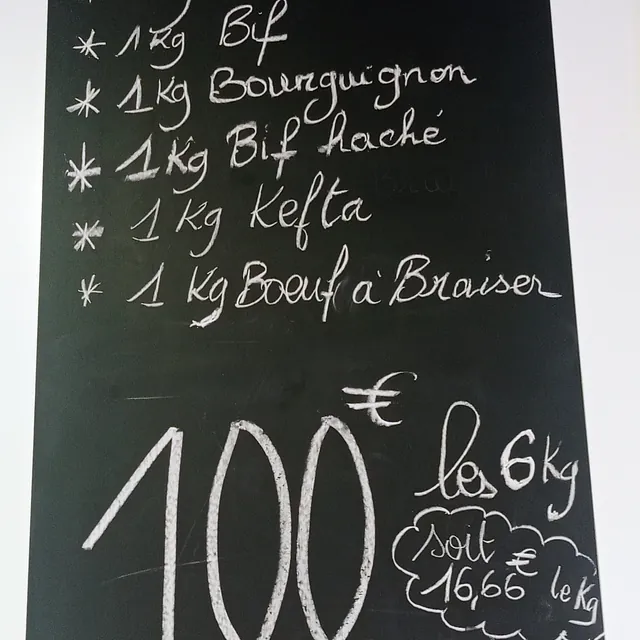 * 1kg Bif
* 1kg Bourguignon
* 1Kg Bif haché
* 1 Kg Kefta
* 1 Kg Boeuf à Braiser
100€ les 6Kg
soit
16,66€ le Kg